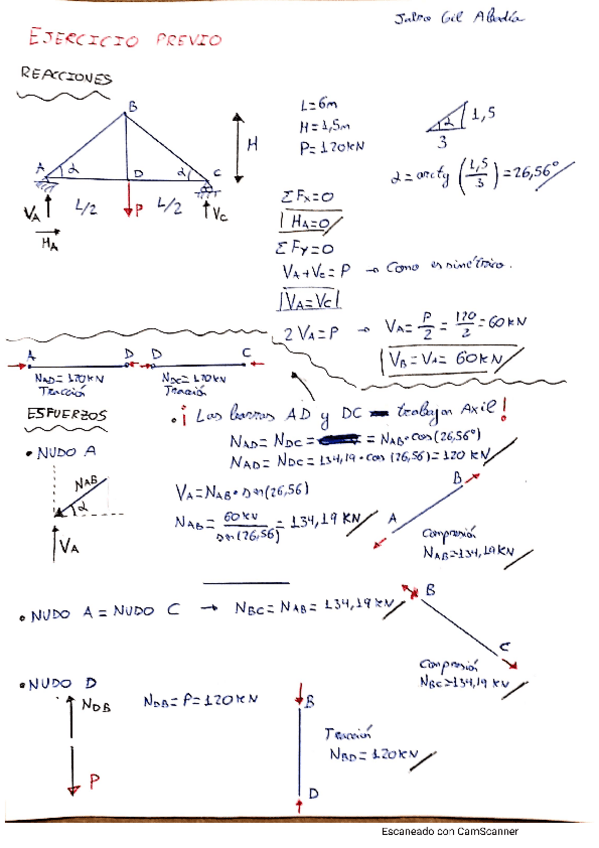 EJERCICIO PREVIO
REACCIONES
B
H
A α D α C
VA L/2 P L/2 VC
HA
L=6m
H=1,5m
P=120kN
α 1,5
3
α=arctg (1,5/3)=26,56°
ΣFx=0
HA=0
ΣFy=0
VA+VC=P → Como es simétrico.
VA=VC
2VA=P → VA=P/2=120/2=60kN
VB=VA=60kN
A D D C
NAD=120kN NDC=120kN
Tracción Tracción
ESFUERZOS
¡Las barras AD y DC trabajan Axil!
NAD=NDC= =NAB·cos(26,56°)
NAD=NDC=134,19·cos(26,56)=120 kN
• NUDO A
NAB
α
VA
VA=NAB·sen(26,56)
NAB=60kN/sen(26,56)=134,19 kN
B
A
Compresión
NAB=134,19kN
• NUDO A = NUDO C → NBC=NAB=134,19kN
B
C
Compresión
NBC=134,19kN
• NUDO D
NDB
P
NDB=P=120kN
B
D
Tracción
NBD=120kN
Escaneado con CamScanner